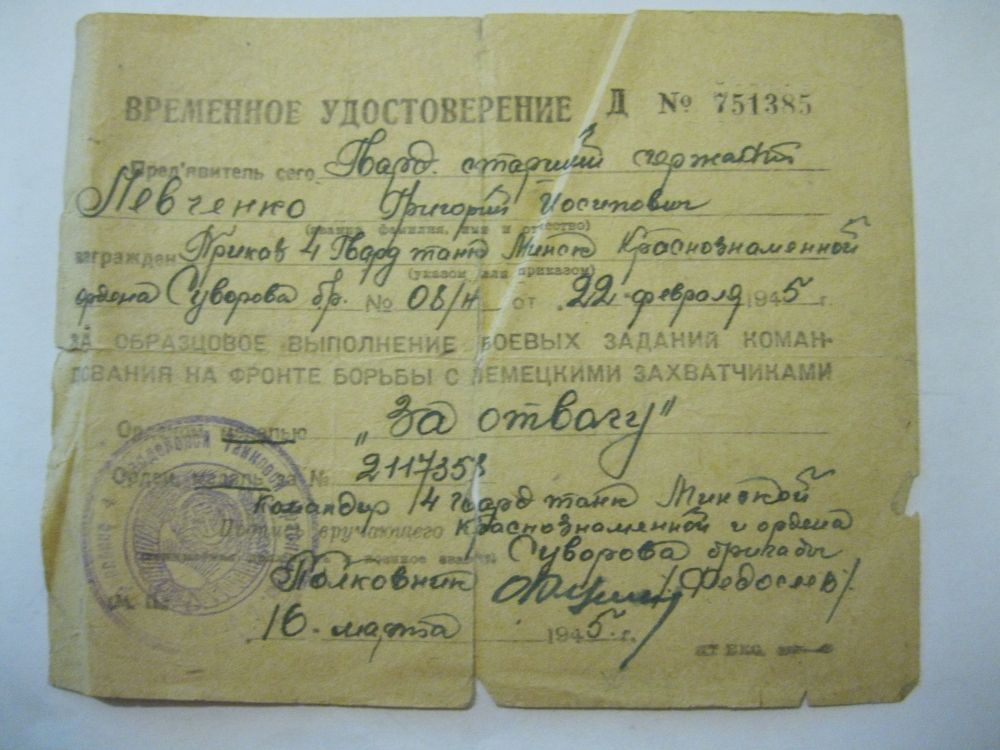 ВРЕМЕННОЕ УДОСТОВЕРЕНИЕ Д № 751385
Пред'явитель сего Гвард. старший сержант
Левченко Григорий Иосипович
(звание, фамилия, имя и отчество)
награжден Приказ 4 Гвард танк Минск Краснознаменной
(указом или приказом)
ордена Суворова бр. № 08/н от 22 февраля 1945 г.
ЗА ОБРАЗЦОВОЕ ВЫПОЛНЕНИЕ БОЕВЫХ ЗАДАНИЙ КОМАН-
ДОВАНИЯ НА ФРОНТЕ БОРЬБЫ С НЕМЕЦКИМИ ЗАХВАТЧИКАМИ
медалью „За отвагу"
Орден, медаль за № 2117358
Командир 4 гвард танк Минской
Подпись вручающего Краснознаменной и ордена
Суворова бригады
Полковник /Федосеев/
М. П.
16 марта 1945 г.